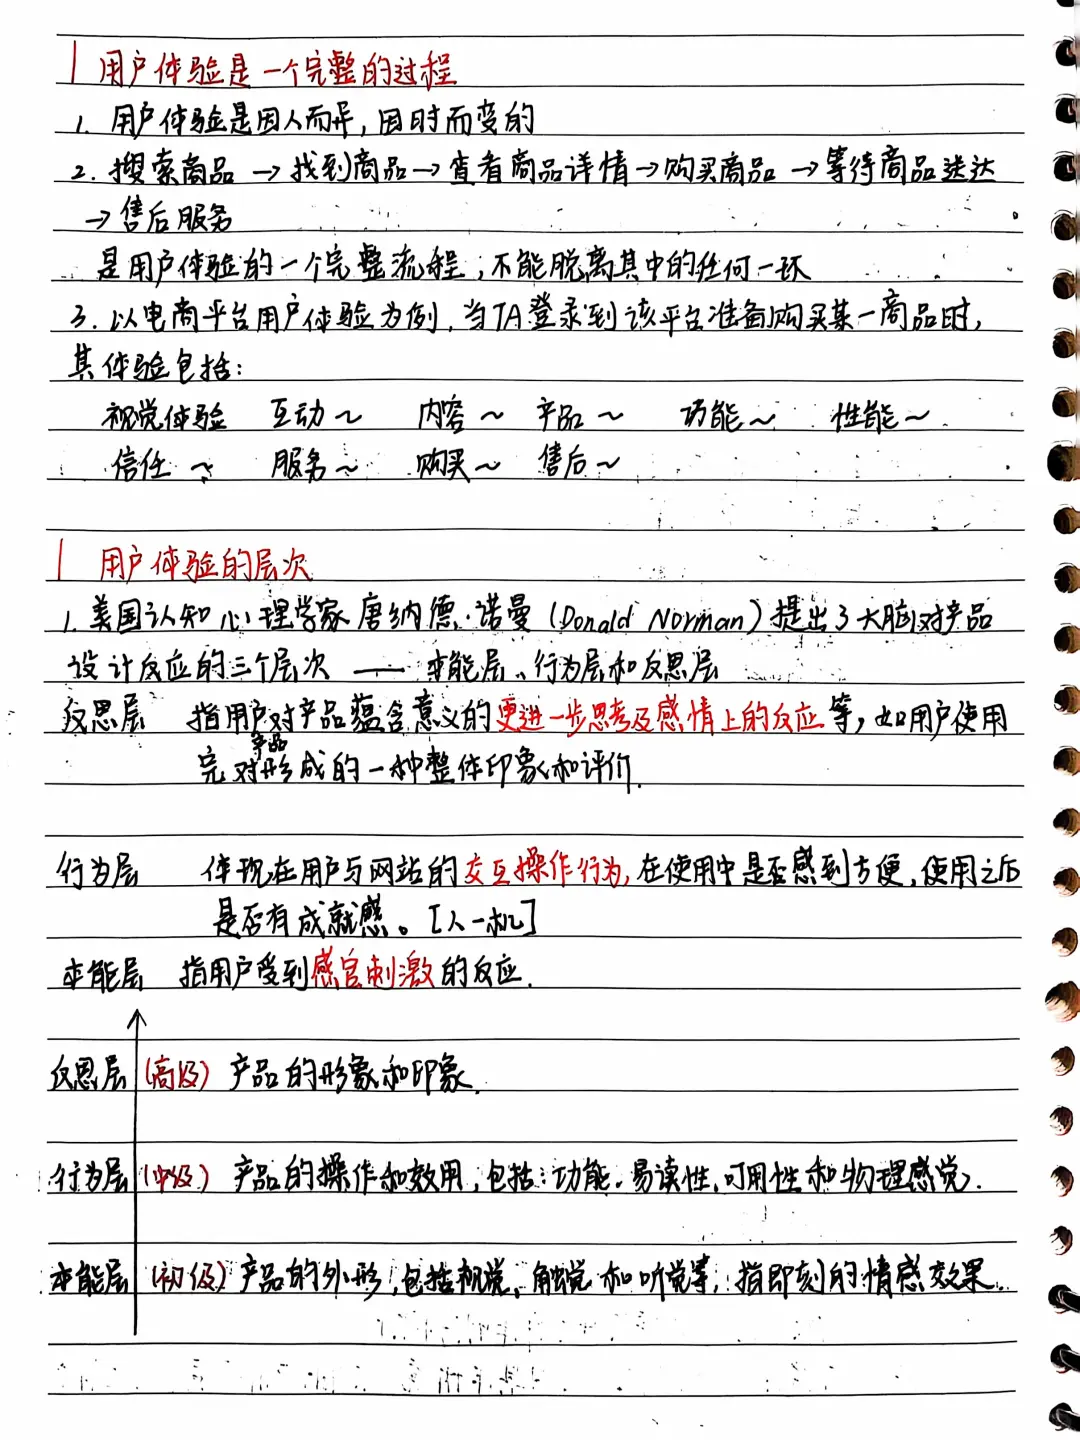 用户体验是一个完整的过程
1. 用户体验是因人而异,因时而变的
2. 搜索商品 → 找到商品 → 查看商品详情 → 购买商品 → 等待商品送达
→ 售后服务
是用户体验的一个完整流程,不能脱离其中的任何一环
3. 以电商平台用户体验为例,当TA登录到该平台准备购买某一商品时,
其体验包括:
视觉体验 互动~ 内容~ 产品~ 功能~ 性能~
信任~ 服务~ 购买~ 售后~
用户体验的层次
1. 美国认知心理学家唐纳德·诺曼(Donald Norman)提出了大脑对产品
设计反应的三个层次 —— 本能层、行为层和反思层
反思层 指用户对产品蕴含意义的更进一步思考及感情上的反应等,如用户使用
完对产品形成的一种整体印象和评价.
行为层 体现在用户与网站的交互操作行为,在使用中是否感到方便,使用之后
是否有成就感。[人-机]
本能层 指用户受到感官刺激的反应.
反思层 (高级) 产品的形象和印象.
行为层 (中级) 产品的操作和效用,包括:功能、易读性、可用性和物理感觉.
本能层 (初级) 产品的外形,包括视觉、触觉和听觉等,指即刻的情感效果.